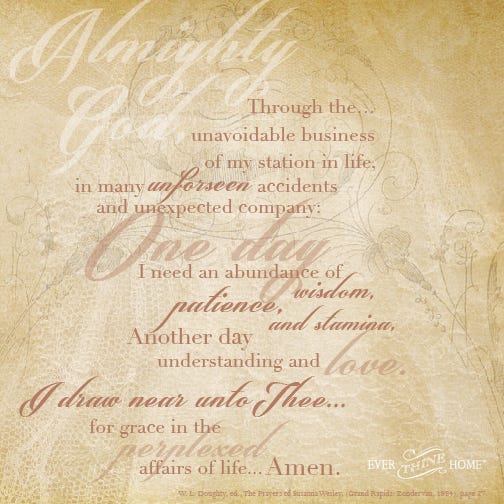 Almighty
God,
Through the...
unavoidable business
of my station in life,
in many unforseen accidents
and unexpected company:
One day
I need an abundance of
patience, wisdom,
and stamina,
Another day
understanding and love.
I draw near unto Thee...
for grace in the
perplexed
affairs of life... Amen.
EVER THINE HOME
W. L. Doughty, ed., The Prayers of Susanna Wesley, (Grand Rapids: Zondervan, 1984), page